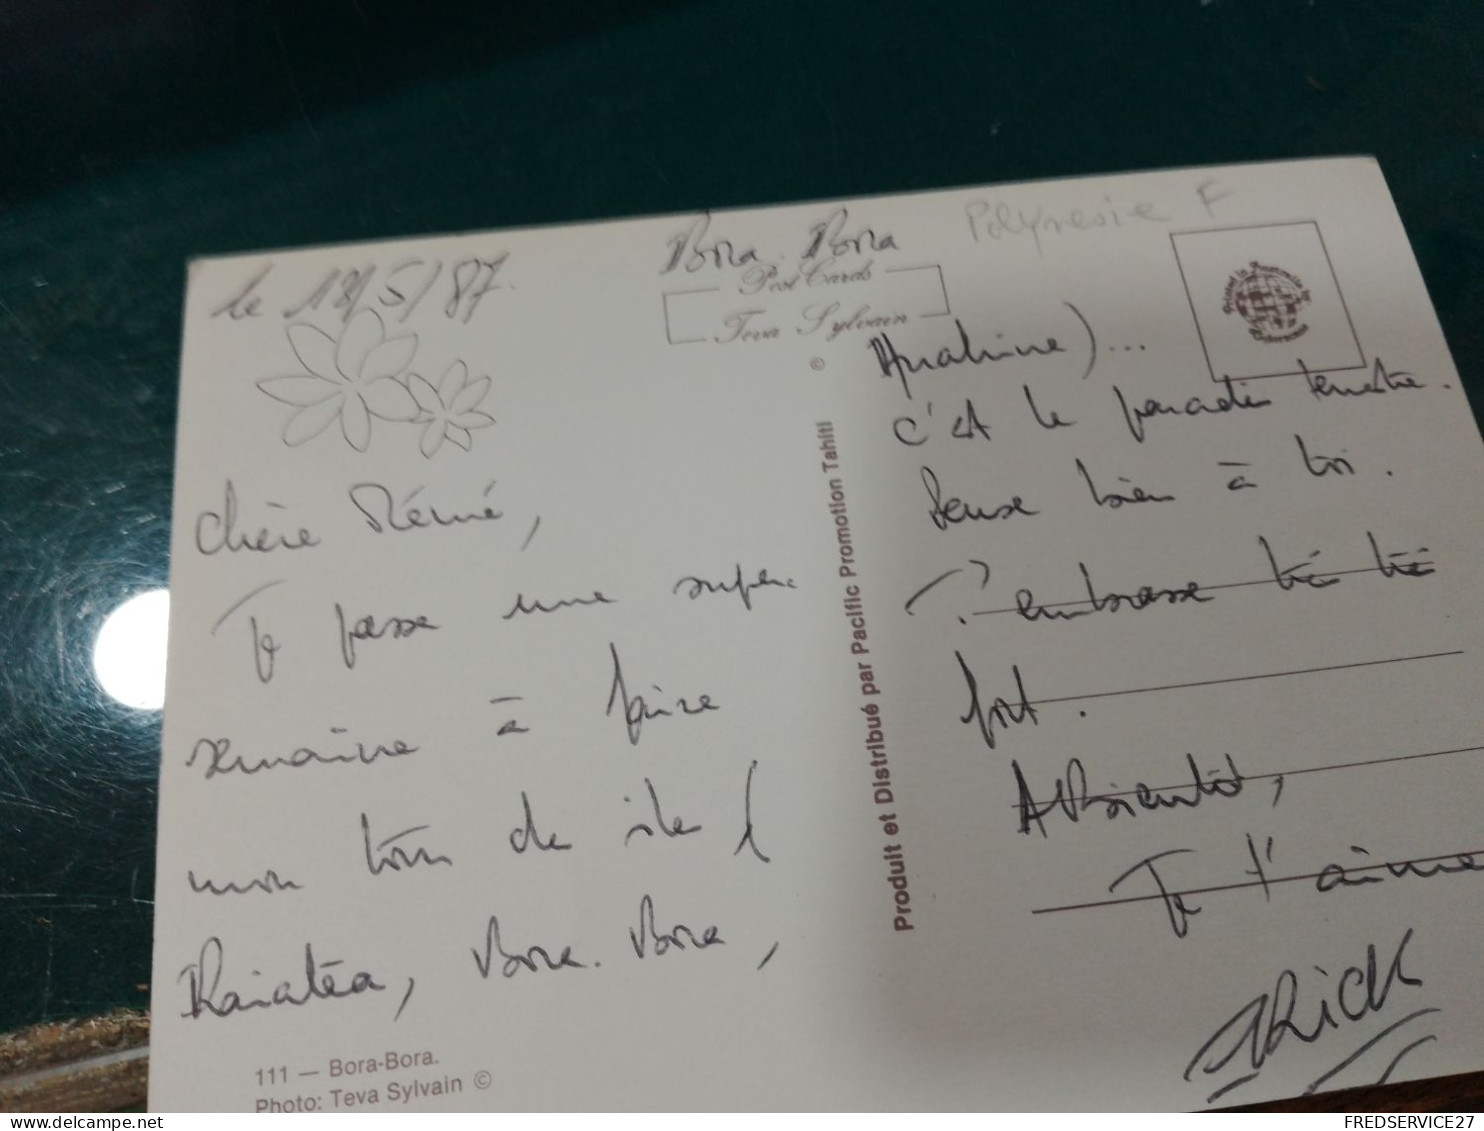 le 13/5/87.
Bora. Bora
Polynesie F
Post Cards
Teva Sylvain
©
Printed in
Chère Mémé,
Je passe une super
semaine à faire
mon tour de île (
Raiatéa, Bora. Bora,
111 — Bora-Bora.
Photo: Teva Sylvain ©
Produit et Distribué par Pacific Promotion Tahiti
Huahine)...
c'est le paradis terrestre.
Pense bien à toi.
J'embrasse très très
fort.
A Bientôt,
Je t'aime
FREDSERVICE27